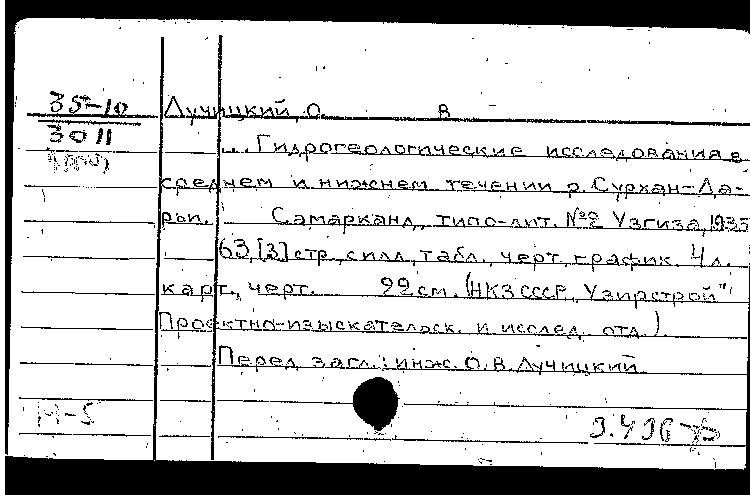 35-10
3011
Лучицкий, О. В
...Гидрогеологические исследования в
среднем и нижнем течении р. Сурхан-Да-
рьи. Самарканд, типо-лит. №2 Узгиза, 1935
63,[3] стр. с илл., табл., черт., график. 4 л.
карт., черт. 22 см. (НКЗ СССР. "Узирстрой".
Проектно-изыскательск. и исслед. отд.).
Перед загл.: инж. О.В. Лучицкий
Н-5